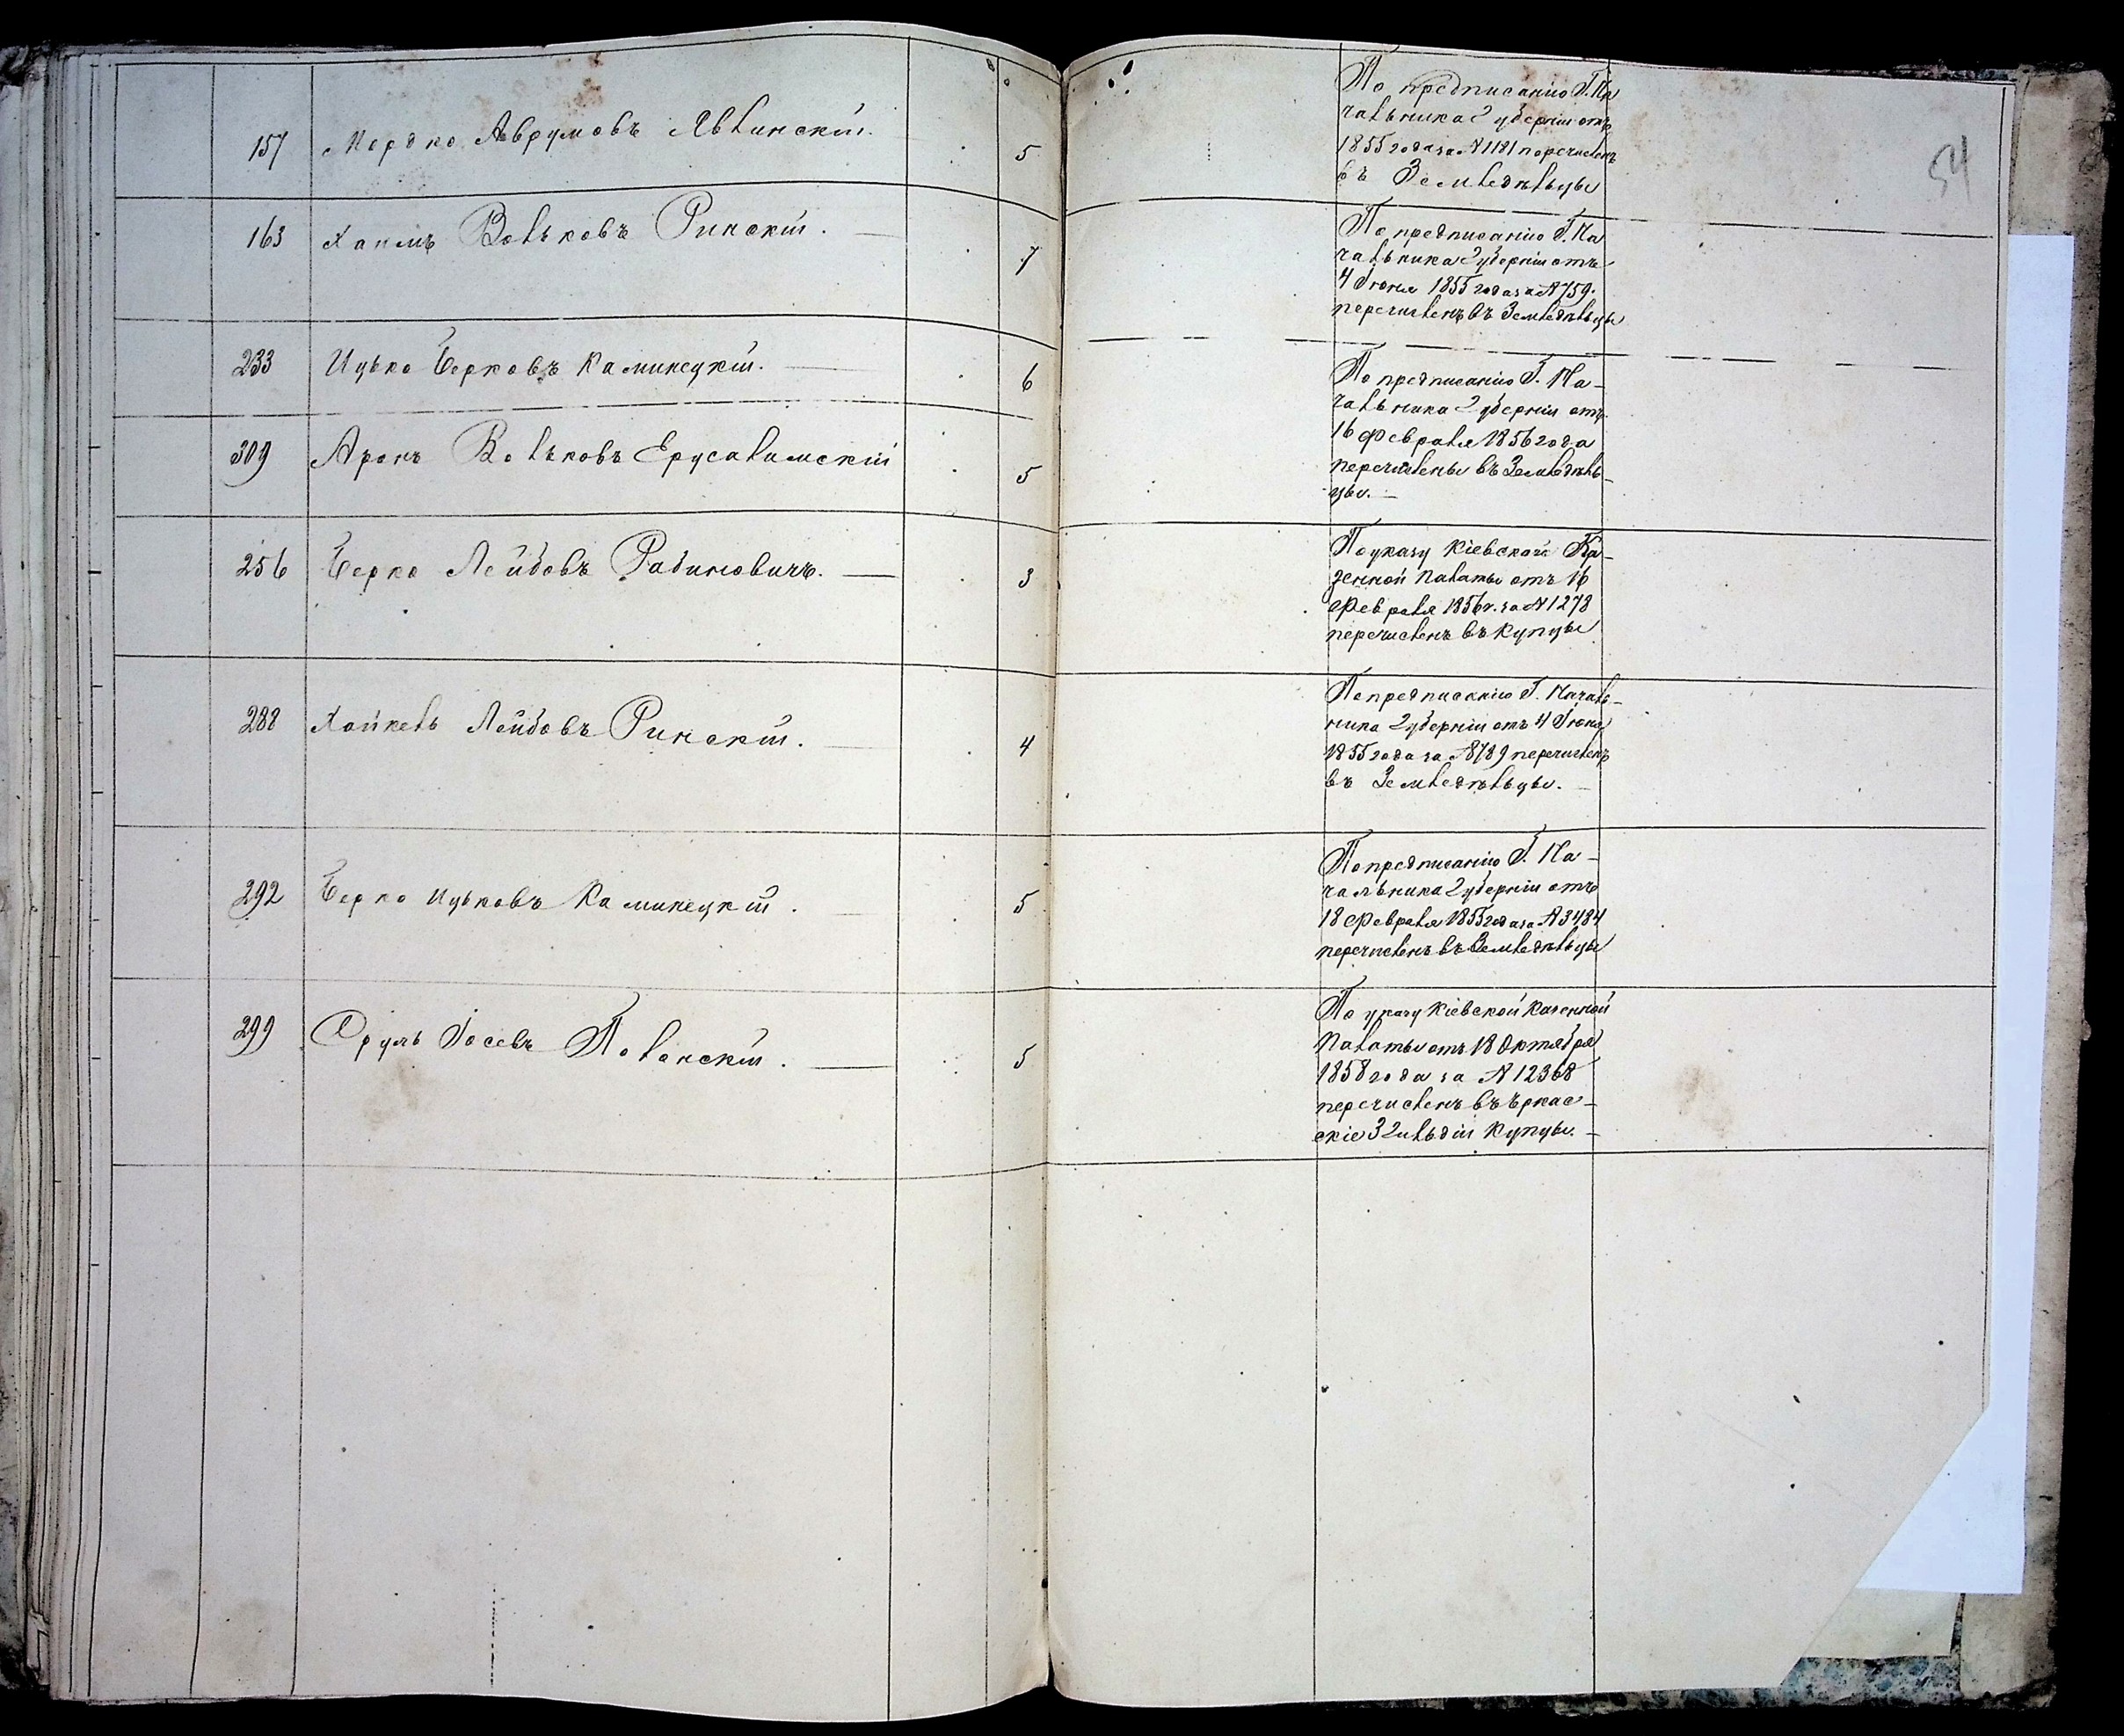 54
157 Мордко Аврумовъ Явлинскій. 5
По предписанію Г. На
чальника Губерніи отъ
1855 года за № 1181 перечисленъ
въ Земледѣльцы
163 Хаимъ Вольковъ Ринскій. 7
По предписанію Г. На
чальника Губерніи отъ
4 Іюня 1855 года за № 759.
перечисленъ въ Земледѣльцы
233 Ицько Берковъ Каминецкій. 6
309 Аронъ Вольковъ Ерусалимскій 5
По предписанію Г. На-
чальника Губерніи отъ
16 Февраля 1856 года
перечислены въ Земледѣль-
цы.
256 Берко Лейбовъ Рабиновичъ. 3
По указу Кіевской Ка-
зенной Палаты отъ 16
Февраля 1856 г. за № 1278
перечисленъ въ Купцы
288 Хайкель Лейбовъ Ринскій. 4
По предписанію Г. Началь-
ника Губерніи отъ 4 Іюня
1855 года за № 8789 перечисленъ
въ Земледѣльцы.
292 Берко Ицьковъ Каминецкій. 5
По предписанію Г. На-
чальника Губерніи отъ
18 Февраля 1855 года за № 3484
перечисленъ въ Земледѣльцы
299 Сруль Іосевъ Полонскій. 5
По указу Кіевской Казенной
Палаты отъ 18 Октября
1858 года за № 12368
перечисленъ въ Чркас-
скіе 3 Гильдіи Купцы.